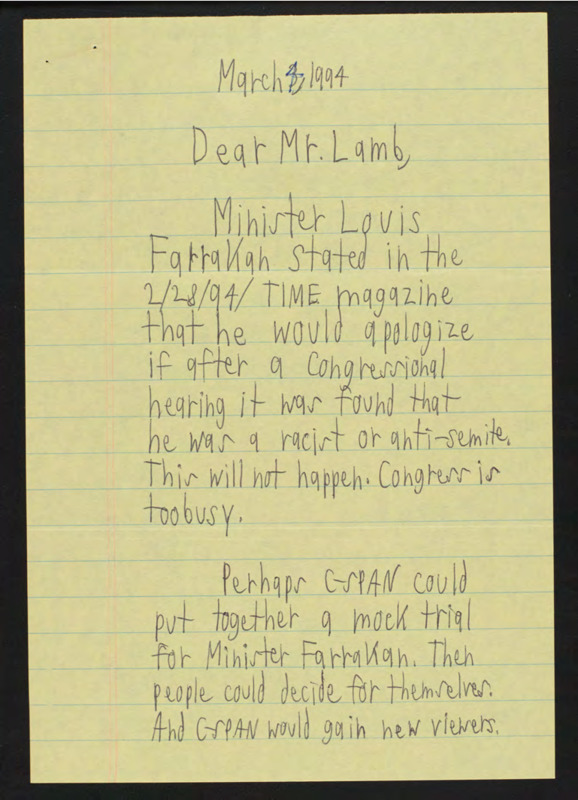 March 2, 1994
Dear Mr. Lamb,
Minister Louis
Farrakan stated in the
2/28/94/ TIME magazine
that he would apologize
if after a Congressional
hearing it was found that
he was a racist or anti-semite.
This will not happen. Congress is
too busy.
Perhaps C-SPAN could
put together a mock trial
for Minister Farrakan. Then
people could decide for themselves.
And C-SPAN would gain new viewers.